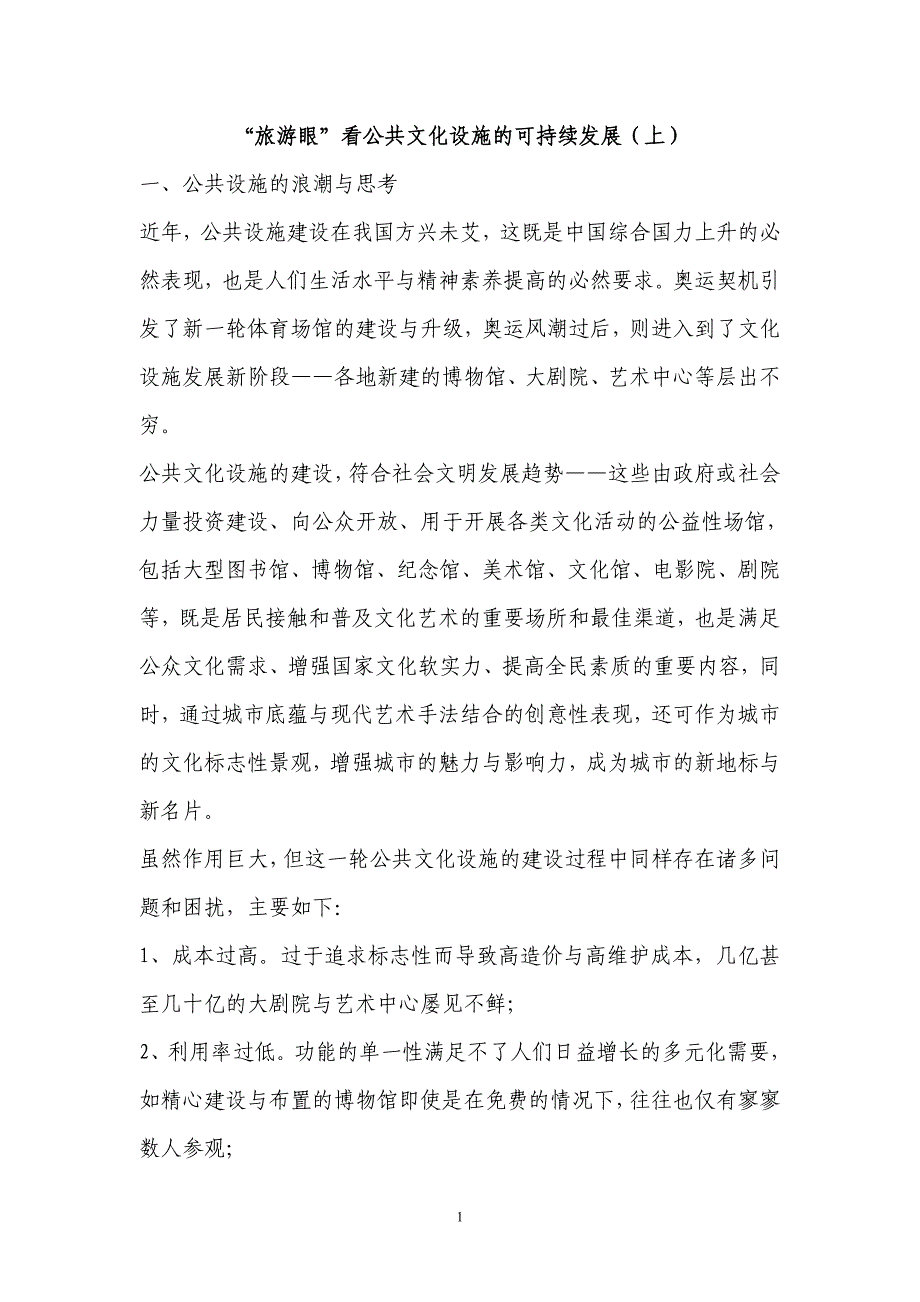 “旅游眼”看公共文化设施的可持续发展（上）
一、公共设施的浪潮与思考
近年，公共设施建设在我国方兴未艾，这既是中国综合国力上升的必
然表现，也是人们生活水平与精神素养提高的必然要求。奥运契机引
发了新一轮体育场馆的建设与升级，奥运风潮过后，则进入到了文化
设施发展新阶段——各地新建的博物馆、大剧院、艺术中心等层出不
穷。
公共文化设施的建设，符合社会文明发展趋势——这些由政府或社会
力量投资建设、向公众开放、用于开展各类文化活动的公益性场馆，
包括大型图书馆、博物馆、纪念馆、美术馆、文化馆、电影院、剧院
等，既是居民接触和普及文化艺术的重要场所和最佳渠道，也是满足
公众文化需求、增强国家文化软实力、提高全民素质的重要内容，同
时，通过城市底蕴与现代艺术手法结合的创意性表现，还可作为城市
的文化标志性景观，增强城市的魅力与影响力，成为城市的新地标与
新名片。
虽然作用巨大，但这一轮公共文化设施的建设过程中同样存在诸多问
题和困扰，主要如下：
1、成本过高。过于追求标志性而导致高造价与高维护成本，几亿甚
至几十亿的大剧院与艺术中心屡见不鲜；
2、利用率过低。功能的单一性满足不了人们日益增长的多元化需要，
如精心建设与布置的博物馆即使是在免费的情况下，往往也仅有寥寥
数人参观；
1